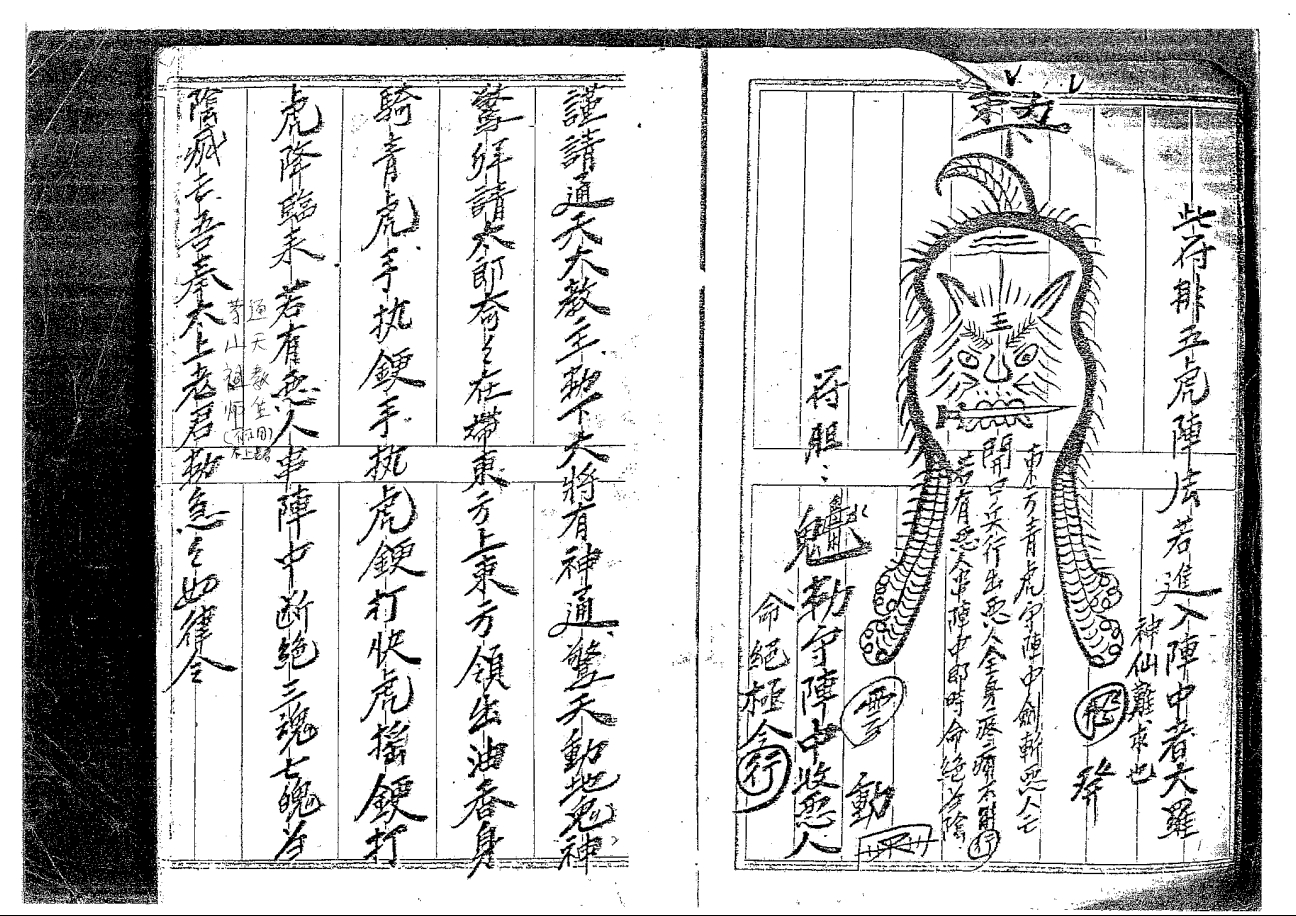 此符排五虎陣法若進入陣中者大羅
神仙難求也
東方青虎守陣中劍斬惡人亡
開口兵行出惡人全身疼痛不
若有惡人串陣中即時命絕
行
發
動
符胆:
勅守陣中收惡人
命絕極令行
謹請通天大教主勅下大將有神通驚天動地鬼神
驚拜請太郎爺々在帶東方上東方領出油香身
騎青虎手执鋼手执虎鋼打快虎搖鋼打
虎降臨來若有惡人串陣中断絕三魂七魄并
陰滅去吾奉太上老君勅急々如律令
通天教主
茅山祖師